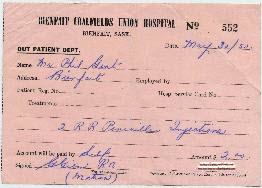 BIENFAIT COALFIELDS UNION HOSPITAL
BIENFAIT, SASK.
No 552
OUT PATIENT DEPT.
Date May 30/50
Name Mr Phil
Address Bienfait Employed by
Patient Reg. No. Hosp. Service Card No.
Treatments
2 R R Penicillin Injections
Account will be paid by Self Amount $ 2.00
Signed RN
(Matron)